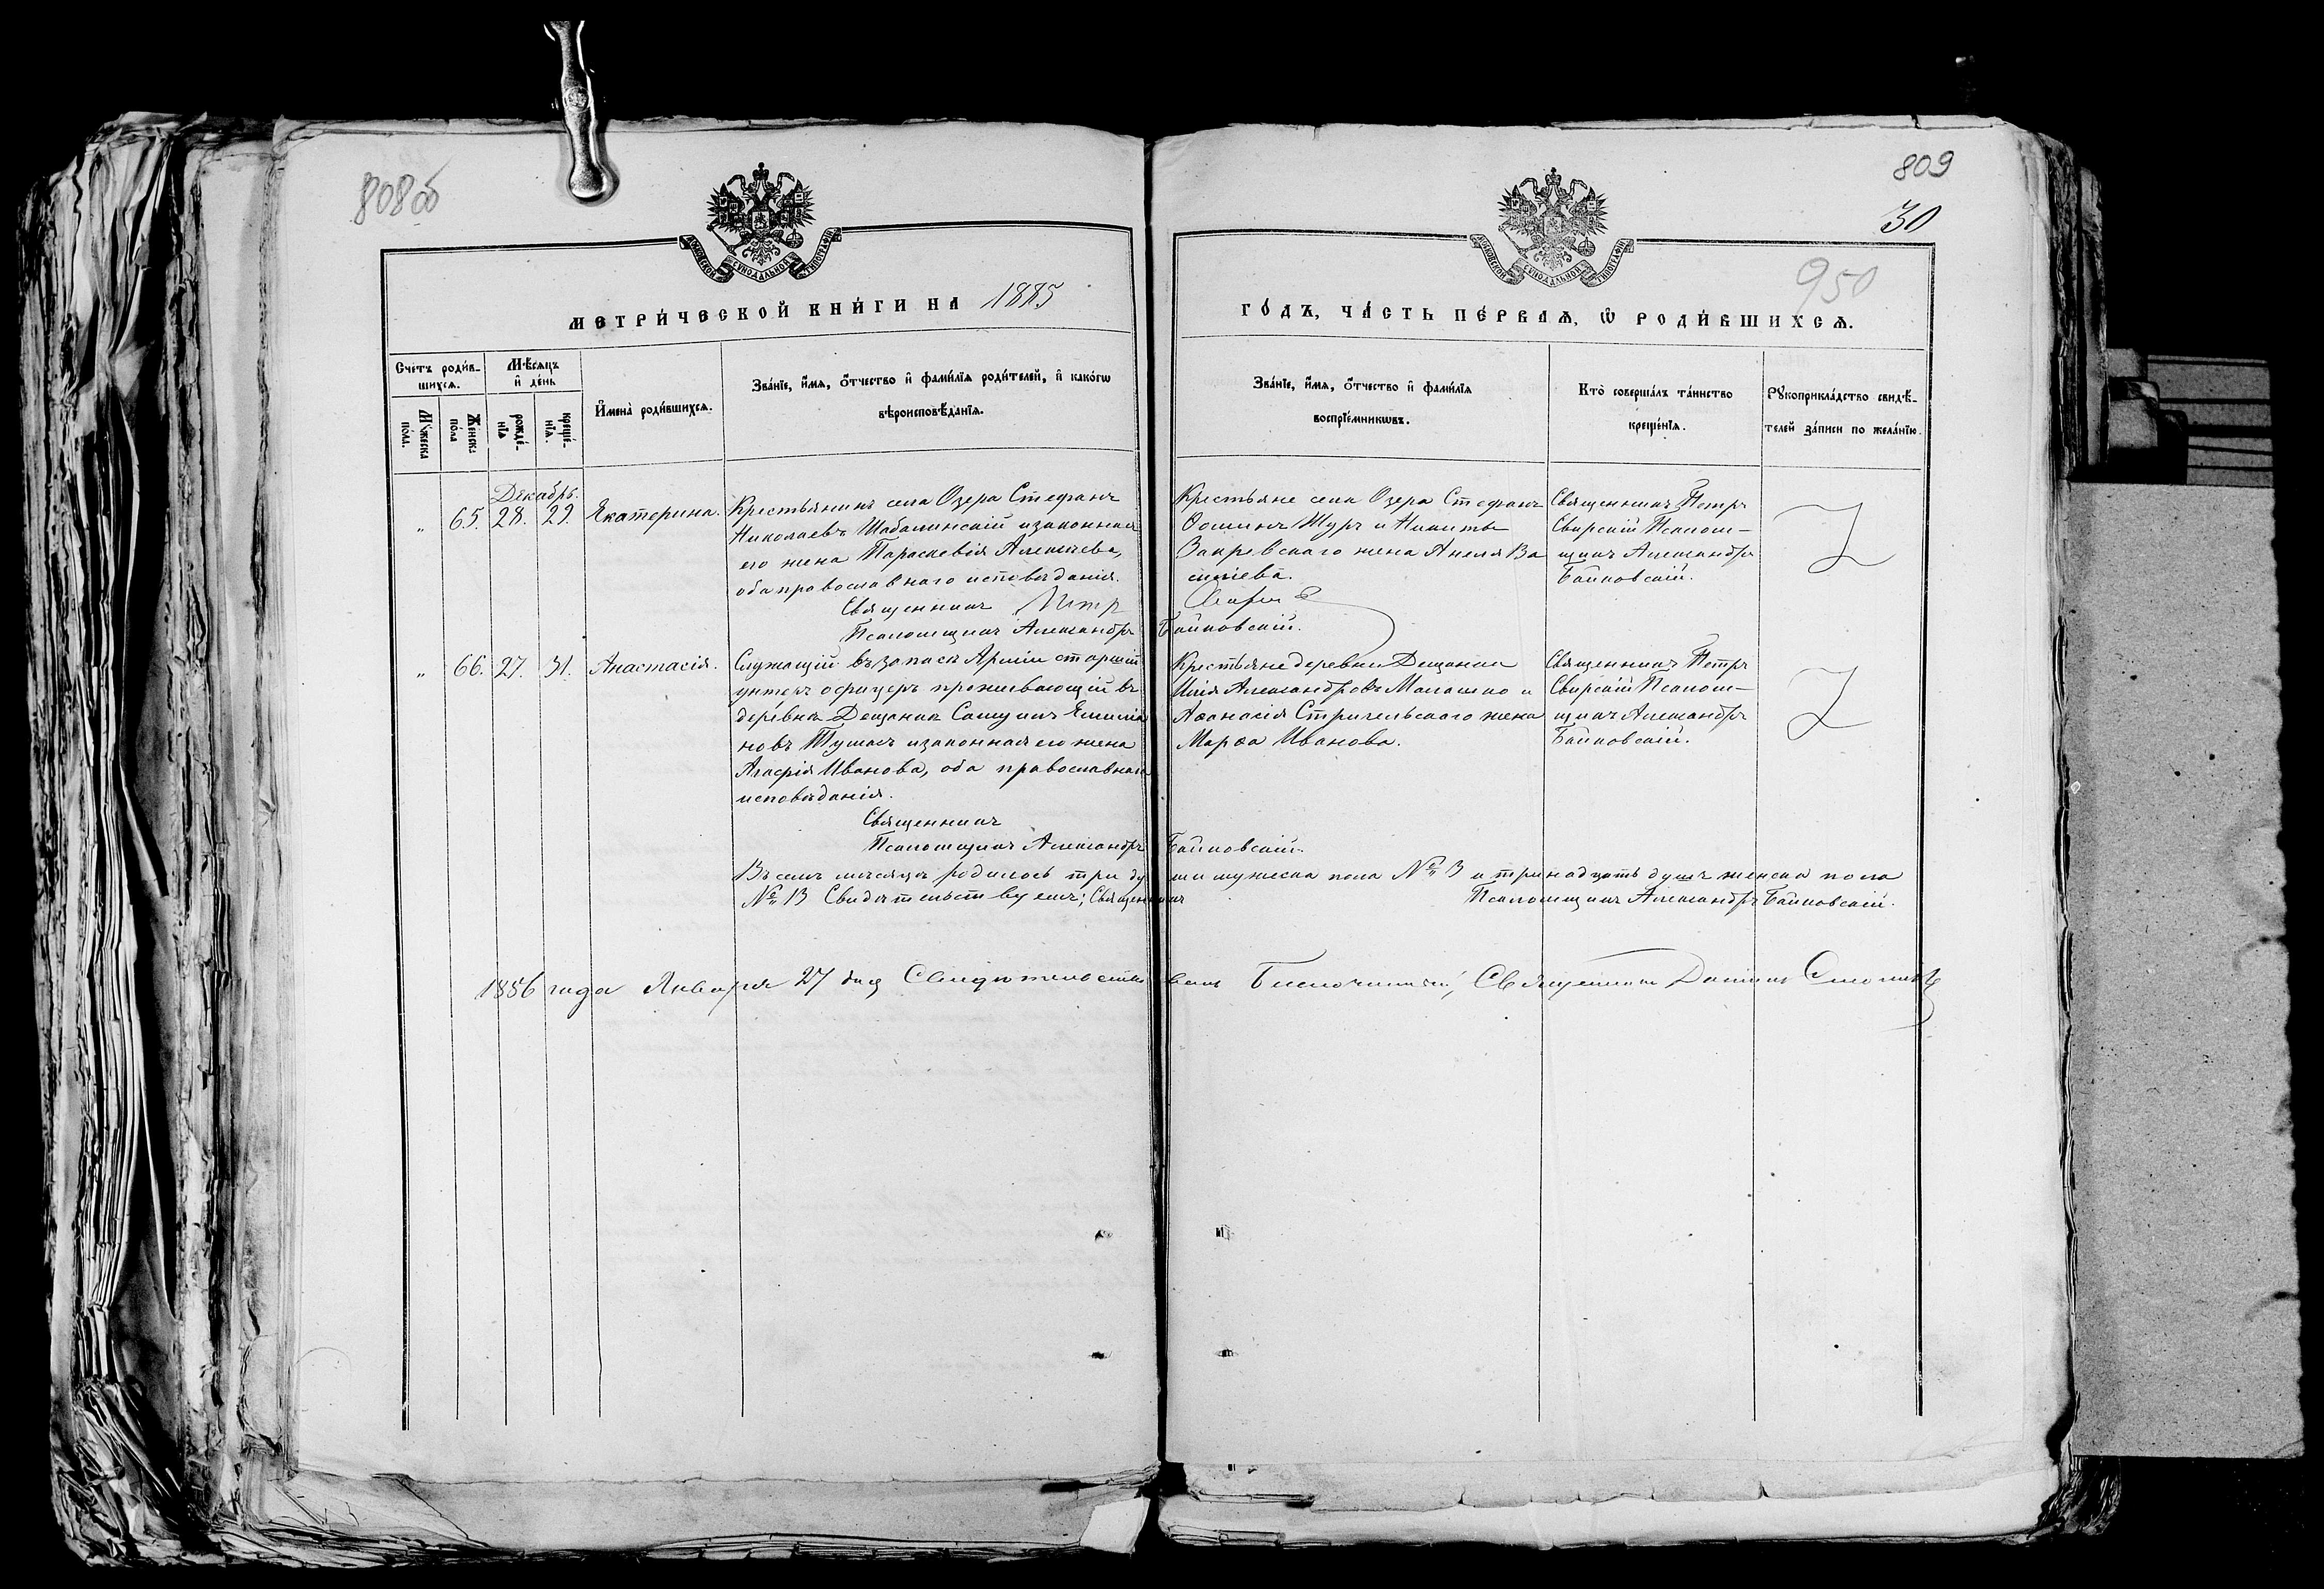 808об
809
30
950
МОСКОВСКОЙ СУНОДАЛЬНОЙ ТИПОГРАФІИ
МОСКОВСКОЙ СУНОДАЛЬНОЙ ТИПОГРАФІИ
МЕТРИ́ЧЕСКОЙ КНИ́ГИ НА 1885
ГО́ДЪ, ЧА́СТЬ ПЕ́РВАѦ, Ѡ҆ РОДИ́ВШИХСѦ.
Сче́тъ роди́в-
шихсѧ.
Мѣ́сѧцъ
и҆ де́нь
Мꙋ́жеска
по́ла.
Же́нска
по́ла
рожде́-
нїѧ
креще́-
нїѧ.
И҆мена̀ роди́вшихсѧ.
Зва́нїе, и҆́мѧ, ѻ҆́тчество и҆ фами́лїѧ роди́телей, и҆ како́гѡ
вѣроисповѣ́данїѧ.
Зва́нїе, и҆́мѧ, ѻ҆́тчество и҆ фами́лїѧ
воспрїе́мникѡвъ.
Кто̀ соверша́лъ та́инство
креще́нїѧ.
Рꙋкоприкла́дство свидѣ́-
телей за́писи по жела́нїю.
Декабрь.
„ 65. 28. 29. Екатерина.
Крестьянинъ села Озера Стефанъ
Николаевъ Шабалинскій и законная
его жена Параскевія Алексѣева,
оба православнаго исповѣданія.
Священникъ Петръ
Псаломщикъ Александръ Байковскій.
Крестьяне села Озера Стефанъ
Журъ и Никиты
Закревскаго жена Анеля Ва
силіева.
Священникъ Петръ
Свирскій Псалом-
щикъ Александръ
Байковскій.
„ 66. 27. 31. Анастасія.
Служащій въ запасѣ Арміи старшій
унтеръ офицеръ проживающій въ
деревнѣ Дещанкѣ Самуилъ Емилія
новъ Тумасъ и законная его жена
Агафія Иванова, оба православнаго
исповѣданія.
Священникъ
Псаломщикъ Александръ Байковскій.
Крестьяне деревни Дещанки
Илія Александровъ Малашко и
Аѳанасія Стрихельскаго жена
Марѳа Иванова.
Священникъ Петръ
Свирскій Псалом-
щикъ Александръ
Байковскій.
Въ семъ мѣсяцѣ родилось три души мужеска пола № 3 и тринадцать душъ женска пола
№ 13 Свидѣтельствуемъ; Священникъ Псаломщикъ Александръ Байковскій.
1886 года Января 27 дня Свидѣтельствовалъ Благочинный, Священникъ